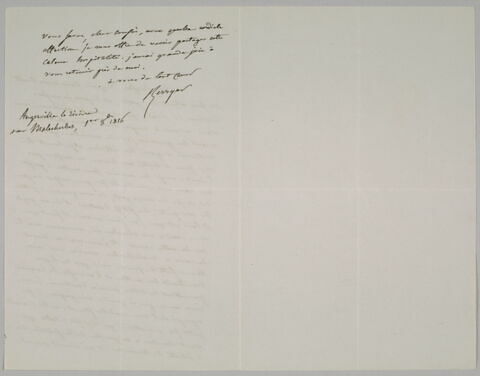 vous savez, cher cousin, avec quelle cordiale
affection je vous offre de venir partager cette
calme hospitalité. j'aurai grande joie à
vous retenir près de moi.
à vous de tout cœur
Berryer
Angerville la Rivière
par Malesherbes, 1er 8bre 1856